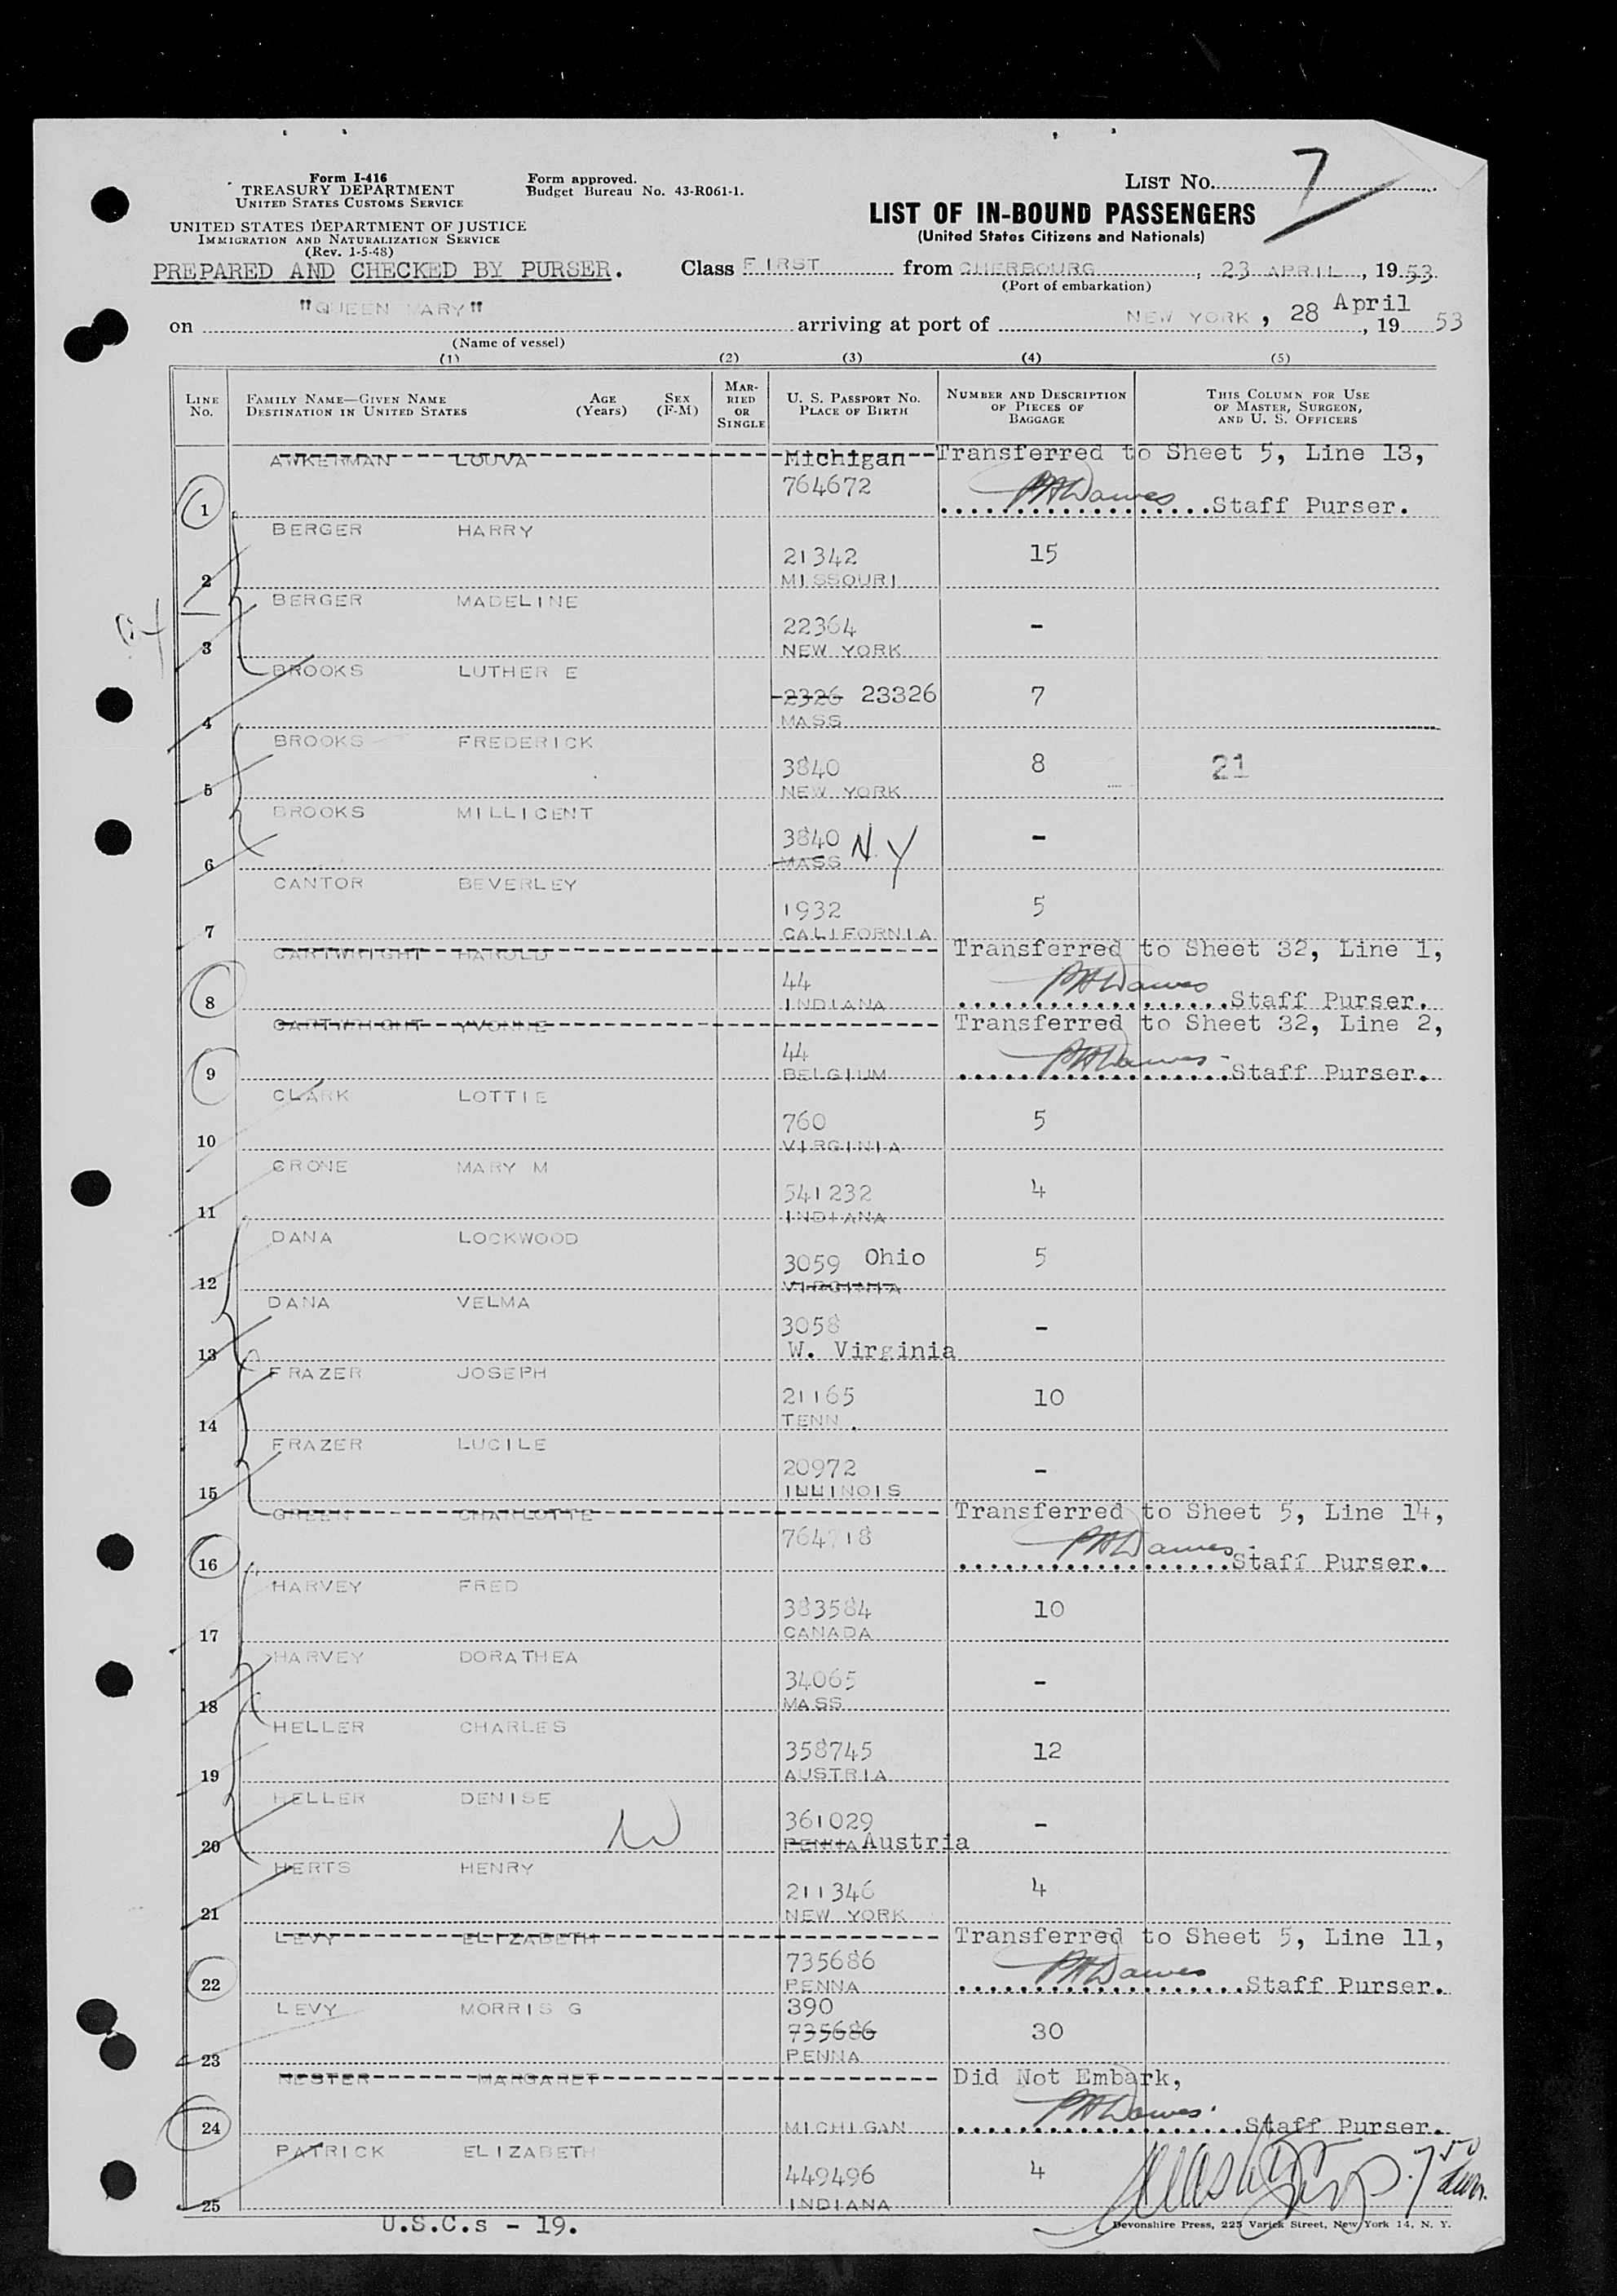 Form I-416
TREASURY DEPARTMENT
UNITED STATES CUSTOMS SERVICE
UNITED STATES DEPARTMENT OF JUSTICE
IMMIGRATION AND NATURALIZATION SERVICE
(Rev. 1-5-48)
Form approved.
Budget Bureau No. 43-R061-1.
LIST NO. 7
LIST OF IN-BOUND PASSENGERS
(United States Citizens and Nationals)
PREPARED AND CHECKED BY PURSER. Class FIRST from CHERBOURG, 23 APRIL, 1953
(Port of embarkation)
on "QUEEN MARY" arriving at port of NEW YORK, 28 April, 19 53
(Name of vessel)
(1) (2) (3) (4) (5)
LINE No. FAMILY NAME—GIVEN NAME DESTINATION IN UNITED STATES AGE (Years) SEX (F-M) MARRIED OR SINGLE U. S. PASSPORT NO. PLACE OF BIRTH NUMBER AND DESCRIPTION OF PIECES OF BAGGAGE THIS COLUMN FOR USE OF MASTER, SURGEON, AND U. S. OFFICERS
AWKERMAN LOUVA Michigan Transferred to Sheet 5, Line 13,
764672
1 Staff Purser.
BERGER HARRY
21342 15
2 MISSOURI
BERGER MADELINE
22364 -
3 NEW YORK
BROOKS LUTHER E
2326 23326 7
4 MASS
BROOKS FREDERICK
3840 8 21
5 NEW YORK
BROOKS MILLICENT
3840 N.Y -
6 MASS
CANTOR BEVERLEY
1932 5
7 CALIFORNIA
CARTWRIGHT HAROLD Transferred to Sheet 32, Line 1,
44
8 INDIANA Staff Purser.
CARTWRIGHT YVONNE Transferred to Sheet 32, Line 2,
44
9 BELGIUM Staff Purser.
CLARK LOTTIE
760 5
10 VIRGINIA
CRONE MARY M
541232 4
11 INDIANA
DANA LOCKWOOD
3059 Ohio 5
12 VIRGINIA
DANA VELMA
3058 -
13 W. Virginia
FRAZER JOSEPH
21165 10
14 TENN.
FRAZER LUCILE
20972 -
15 ILLINOIS
GREEN CHARLOTTE Transferred to Sheet 5, Line 14,
764718
16 Staff Purser.
HARVEY FRED
383584 10
17 CANADA
HARVEY DORATHEA
34065 -
18 MASS
HELLER CHARLES
358745 12
19 AUSTRIA
HELLER DENISE
361029 -
20 PENNA Austria
HERTS HENRY
211346 4
21 NEW YORK
LEVY ELIZABETH Transferred to Sheet 5, Line 11,
735686
22 PENNA Staff Purser.
LEVY MORRIS G 390
735686 30
23 PENNA
NESTER MARGARET Did Not Embark,
24 MICHIGAN Staff Purser.
PATRICK ELIZABETH
449496 4
25 INDIANA
U.S.C.s - 19.
Devonshire Press, 225 Varick Street, New York 14, N. Y.